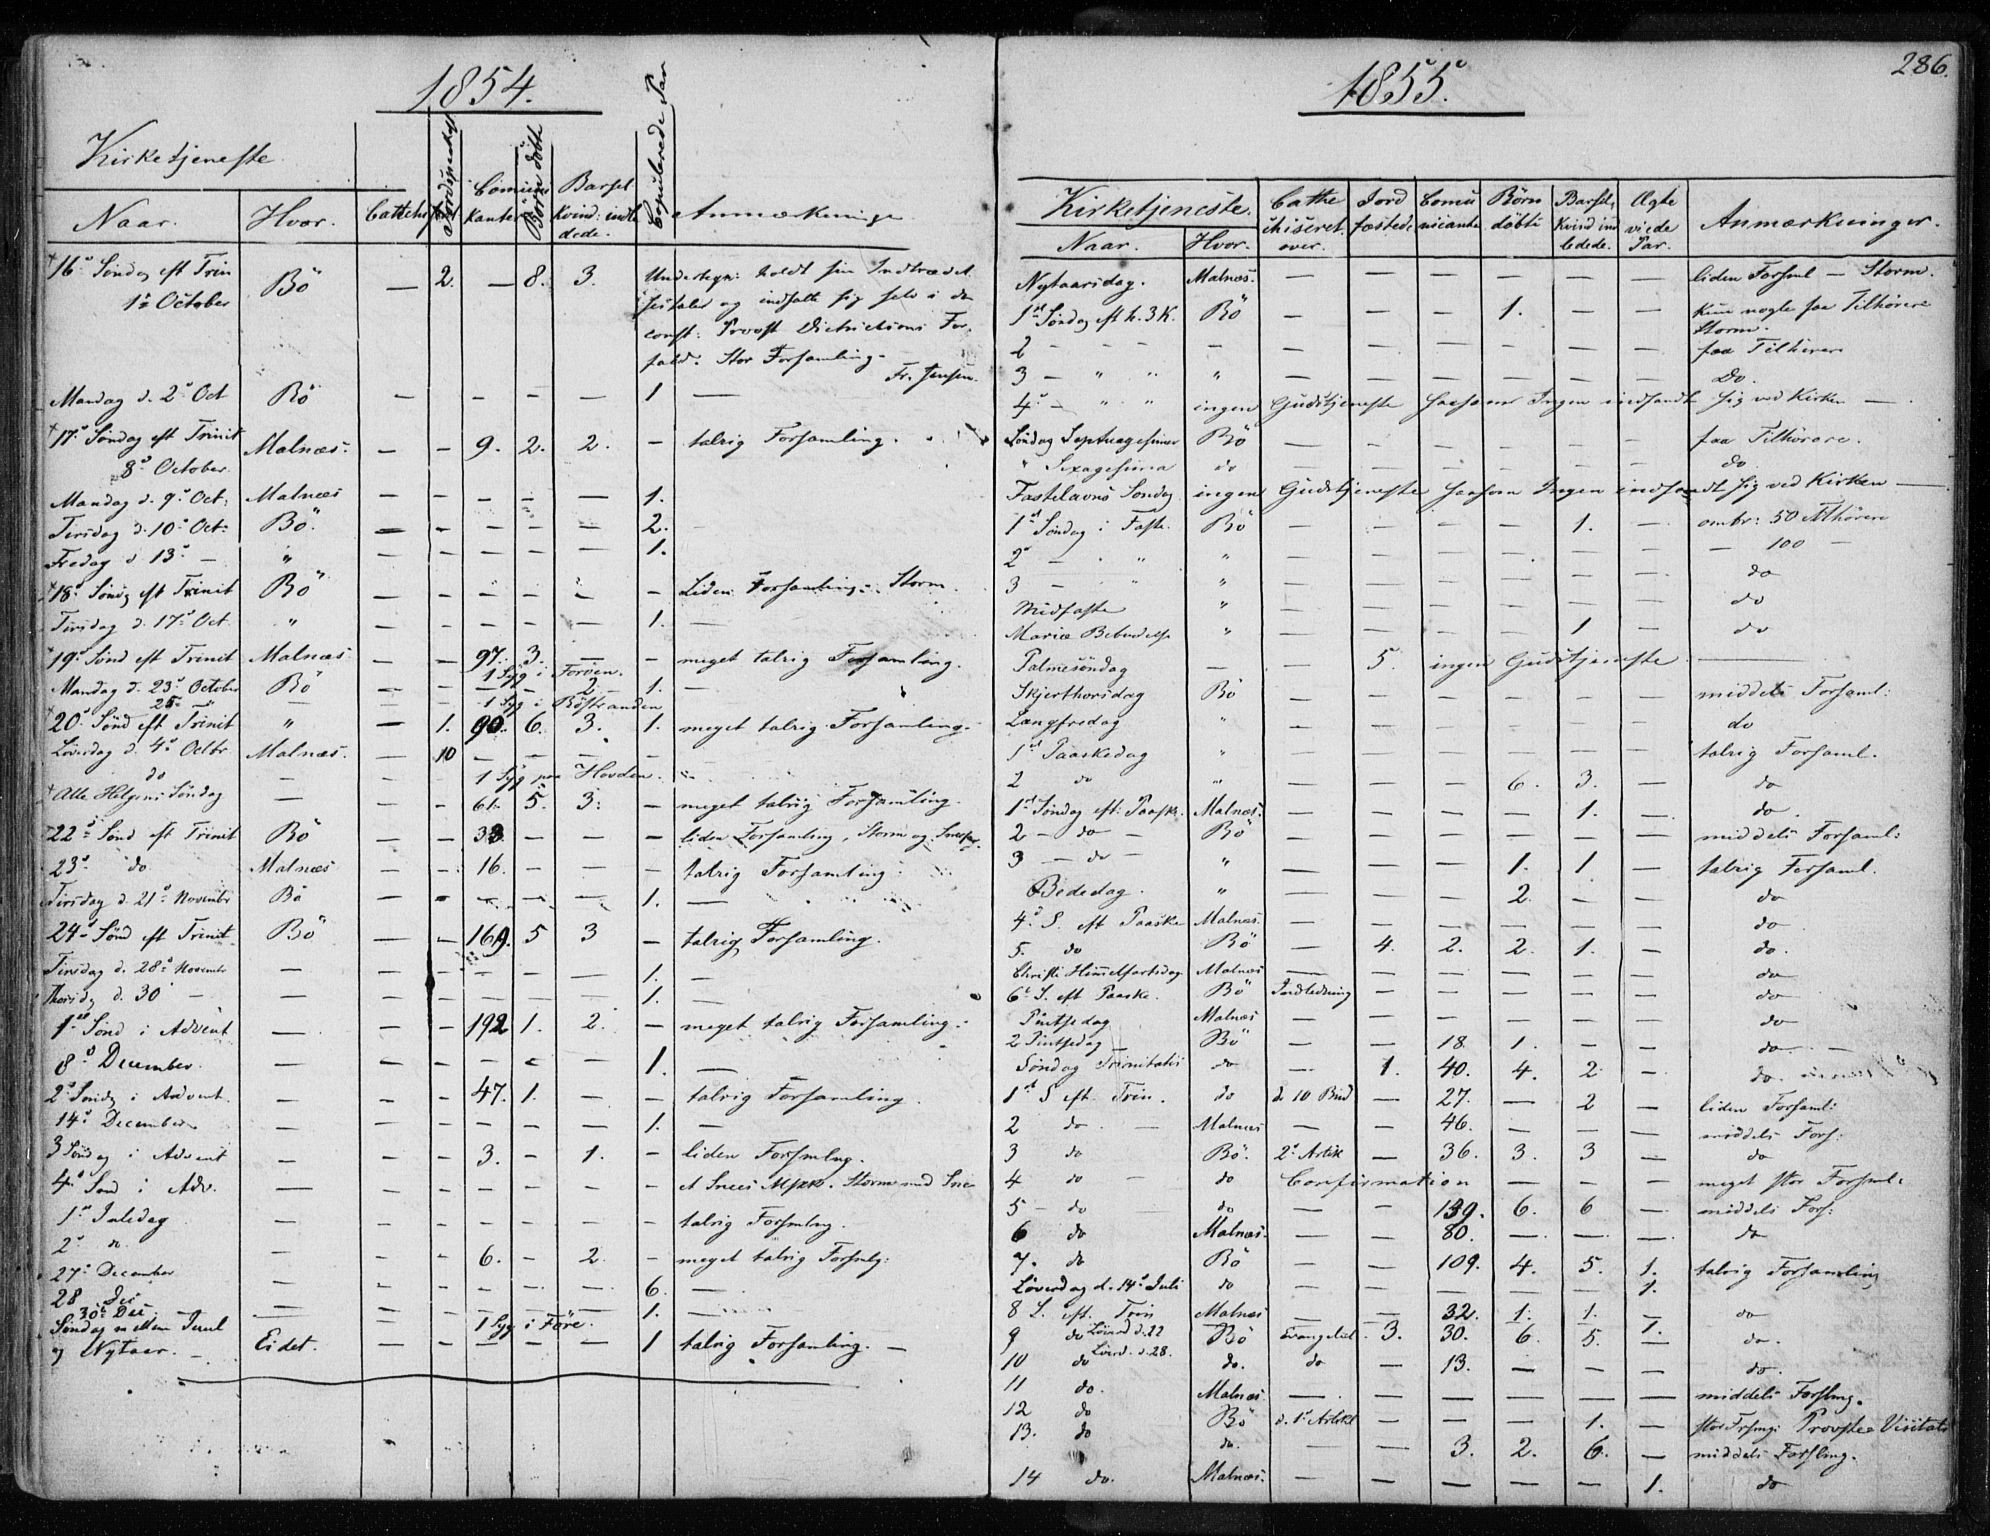 1854.
Kirketjeneste
Naar. Hvor. Cathehis Jordspaakast Comuni kanter Börn döbte Barsel kvind: indle dede. Copulerede Par Anmærkninge
16d Söndag eft Trin Bö — 2. — 8. 3. Undertegn: holdt sin Indtrædel
1ste October sestaler og indsatte sig selv i den
const: Provst Districtions For-
fald. Stor Forsamling.
Fr. Jensen.
Mandag d. 2d Oct Bö — — — — — 1 —
17d Söndag eft Trinit Malnæs. — — 9. 2. 2. — talrig Forsamling.
8d October
Mandag d. 9d Oct. Malnæs — — — — — 1.
Tirsdag d. 10d Oct: Bö. — — — — — 2. —
Fredag d 13d — " — — — — — 1.
18d Sönd eft Trinit Bö — — — — — — Liden Forsamling. Storm.
Tirsdag d. 17d Oct " — — — — — 1. —
19d Sönd eft Trinit Malnæs — — 97. 3. — — meget talrig Forsamling.
1 Syg i Foröen.
Mandag d. 23d October Bö — — — — 2 1. —
25d " — 1 Syg i Böstranden
20d Sönd eft Trinit " — 1. 90. 6. 3. 1. meget talrig Forsamling.
Löverdag d. 4d Octbr Malnæs. — 10 — — —
do — 1 Syg paa Hovden.
Alle Helgens Söndag — — 61. 5. 3. — meget talrig Forsamling.
22d Sönd eft Trinit Bö — — 33 — — — liden Forsamling, Storm og
23d do Malnæs — — 16. — — — talrig Forsamling.
Tirsdag d. 21d Novembr Bö — — — — — 1. —
24d Sönd eft Trinit. Bö — — 169. 5 3 — talrig Forsamling.
Tirsdag d. 28d Novembr — — — — — — 1. —
Thorsdg d. 30 — — — — — — — 1. —
1ste Sönd i Advent — — — 192 1. 2. — meget talrig Forsamling.
8d December. — — — — — — 1. —
2d Söndg i Advent. — 47. 1. — — talrig Forsamling.
14d December — — — — — — 1. —
3 Söndag i Advent — — — 3. — 1. — liden Forsmlng.
4d Sönd i Adv. — — — — — — — Storm med Snee
1d Juledag — — — — — — — talrig Forsmlng.
2d do. — — — 6. — 2. — meget talrig Forsmlg:
27d December — — — — — — 6. —
28 De — — — — — — 1. —
30d Dec. — — 1 Syg i Före.
Söndag mellem Juul
og Nytaar. — Eidet. — — — — — 1 talrig Forsamling. —
1855. 286.
Kirketjeneste. Cathe chiseret over. Jord fæstede Comu nicanter Börn döbte Barsel, Kvind ind ledede. Ægte viede Par. Anmærkninger.
Naar. Hvor.
Nytaarsdag. Malnæs. — — — — — — liden Forsml — Storm.
1ste Söndag eft h. 3 K. Bö — — — 1. — — Kun nogle faa Tilhörere
Storm.
2 — — — " — — — — — — faa Tilhörere
3 — " " " — — — — — — Do.
4d — " " ingen Gudstjeneste saasom Ingen indfandt sig ved Kirken —
Söndag Septuagesima Bö — — — — — — faa Tilhörere.
" Sexagesima do — — — — — — do
Fastelavns Söndag ingen Gudstjeneste saasom Ingen indfandt sig ved Kirken —
1ste Söndag i Faste. Bö — — — — 1. — omtr: 50 Tilhörere
2d — " " " — — — — — — — 100 —
3 — " " — — — — — — do
Midfaste " — — — — — — do
Mariæ Bebudelse " — — — — 1 — do
Palmesöndag — — 5. ingen Gudstjeneste —
Skjerthorsdag Bö — — — — — — middels Forsaml:
Langfredag " — — — — — — do
1ste Paaskedag " — — — — — — talrig Forsaml.
2 do " — — — 6. 3. — do
1ste Söndag eft: Paask. Malnæs. — — — — 1. — do.
2 — do — Bö — — — — — — middels Forsaml:
3 — do — " — — — 1. 1. — talrig Forsaml.
Bededag. " — — — 2. — — do
4d S. eft Paaske Malnæs. — — — — — — do
5. do Bö — 4. 2. 2. 1. — do.
Christi Himmelfartsdag Malnæs — — — — — — do
6d S. eft Paaske. Bö Indledning — — — — — do
Pintsedag Malnæs — — — — — — do
2 Pintsedag — Bö — — 18. 1. — — do. —
Söndag Trinitatis do — 1. 40. 4. 2 — do.
1ste S eft Trin. do de 10 Bud — 27. — 2 — liden Forsaml:
2 do. — Malnæs — — 46. — — — middels Fors:
3 do Bö. 2d Artik — 36. 3. 3 — do
4 do — do Confirmation — — — meget stor Forsml.
5 — do — do — — 139. 6. 6 — middels Fors:
6 do Malnæs. — — 80. — — — do
7. do Bö — — 109. 4. 5. 1. talrig Forsamling
Löverdag d. 14d Juli do — — — — — 1.
8 S. eft. Trin Malnæs — — 32. 1. 1. — do
9 do Löverd d. 22 Bö Evangeliet. 3. 30. 6. 5. 1. do.
10 do Löverd. d. 28. do. do — 13. — — — do.
11 do. Malnæs — — — — — — middels Forslmg.
12 do Bö d. 1d Artikl — — — 1. — stor Frsmg: Provste Visitats
13. do do. — — 3. 2. 6. — middels Forslmg.
14 do. Malnæs. — — — — — 1. do